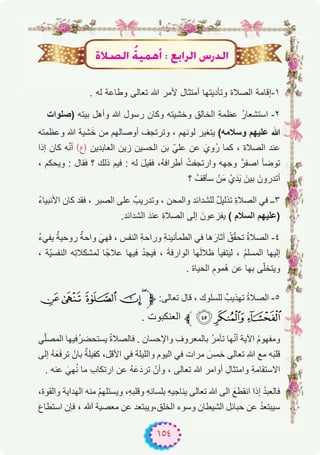 الدرس الرابع : أهميةُ الصلاة
١-إقامة الصلاة وتأديتها أمتثال لأمر الله تعالى وطاعة له .
٢- استشعارُ عظمةِ الخالقِ وخشيته وكان رسول الله وأهل بيته (صلوات
الله عليهم وسلامه) يتغير لونهم ، وترتجف أوصالهم من خَشية الله وعظمته
عند الصلاة ، كما رُوِيَ عن عليّ بن الحسين زين العابدين (ع) أنّه كان إذا
توضأ اصفرَّ وجهه وارتجفتْ أطرافهُ، فقيلَ له : فيم ذلك ؟ فقال : ويحكم ،
أتدرونَ بينَ يَدَيْ مَنْ سأقفُ ؟
٣ـ في الصلاةِ تذليلٌ للشدائد والمحن ، وتدريبٌ على الصبرِ ، فقد كان الأنبياءُ
(عليهم السلام ) يفزعونَ إلى الصلاةِ عندَ الشدائد.
٤- الصلاةُ تحقّقُ آثارَها في الطمأنينةِ وراحةِ النفس ، فهيَ واحةٌ روحيةٌ يفيءُ
إليها المسلمُ ، ليتفيأ ظلالَها الوارفة ، فيجدُ فيها علاجًا لمشكلاتِه النفسيّة ،
ويتخلّى بها عن هُمومِ الحياةِ .
٥- الصلاةُ تهذيبٌ للسلوك ، قال تعالى: ﴿ إِنَّ ٱلصَّلَوٰةَ تَنْهَىٰ عَنِ
ٱلْفَحْشَآءِ وَٱلْمُنكَرِ ٤٥ ﴾ العنكبوت .
ومفهومُ الآية أنّها تأمرُ بالمعروفِ والإحسان . فالصلاةُ يستحضرُفيها المصلّي
قلبَه مع الله تعالى خمس مرات في اليوم والليلة في الأقل، كفيلةٌ بأنْ ترفعَهُ إلى
الاستقامةِ وامتثالِ أوامر الله تعالى ، وأنْ تردَعَهُ عن ارتكابِ ما نُهِيَ عنه .
فالعبدُ إذا انقطعَ الى الله تعالى يناجيهِ بلسانهِ وقلبهِ، ويستلهمُ منه الهداية والقوة،
سيبتعدُ عن حبائل الشيطان وسوء الخلق،ويبتعد عن معصية الله ، فإن استطاع
١٥٤